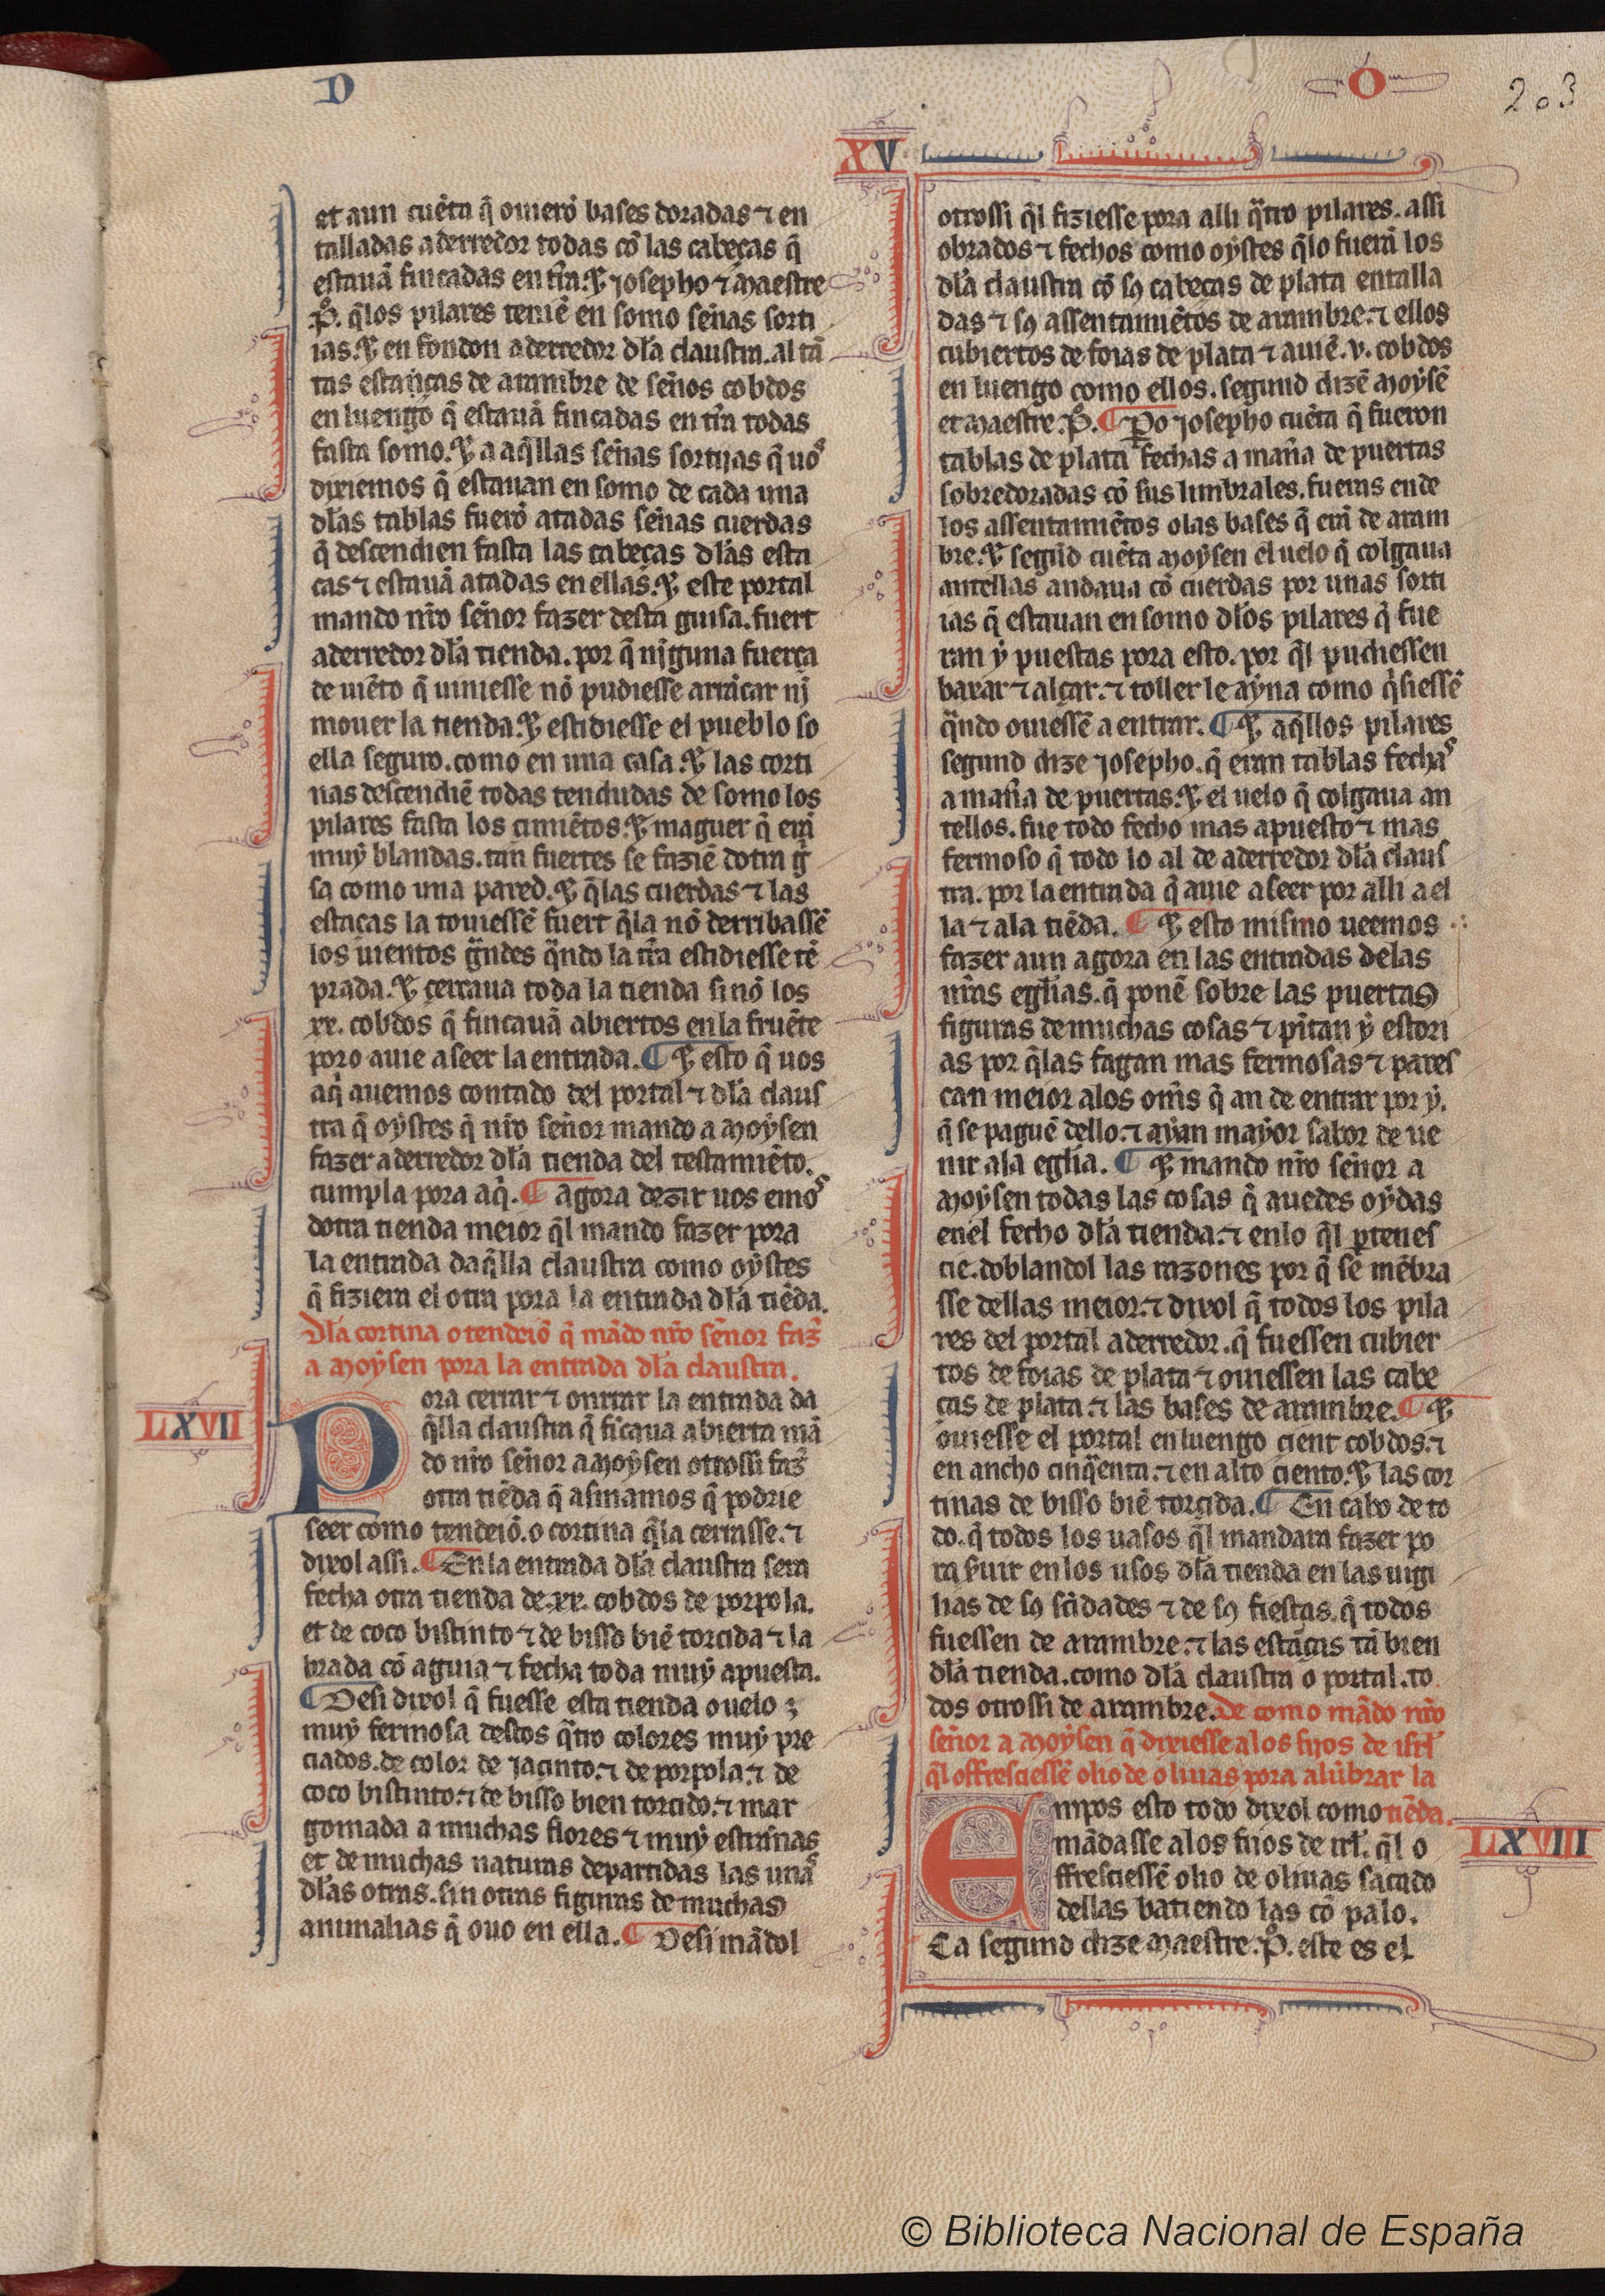 D
O
203
XV
et aun cuẽta q̃ ouierõ bases doradas ⁊ en
talladas aderredor todas cõ las cabeças q̃
estauã fincadas en tr̃ra. ⁊ josepho ⁊ maestre
P̊. q̃ los pilares teniẽ en somo señas sorti
ias. ⁊ en fondon aderredor dla claustra. al tã
tas estacas de arambre de seños cobdos
en luengo q̃ estauã fincadas en tr̃ra todas
fasta somo. ⁊ a aq̃llas señas sortijas q̃ uos
dixiemos q̃ estauan en somo de cada una
dlas tablas fuerõ atadas señas cuerdas
q̃ descendien fasta las cabeças dlas esta
cas ⁊ estauã atadas en ellas. ⁊ este portal
mando nr̃o señor fazer desta guisa. fuert
aderredor dla tienda. por q̃ njguna fuerça
de uiẽto q̃ uiniesse nõ pudiesse arrãcar nj̃
mouer la tienda. ⁊ estidiesse el pueblo so
ella seguro. como en una casa. ⁊ las corti
nas descendiẽ todas tendudas de somo los
pilares fasta los cimiẽtos. ⁊ maguer q̃ erã
muy blandas. tan fuertes se faziẽ dotra g̃
sa como una pared. ⁊ q̃ las cuerdas ⁊ las
estacas la touiessẽ fuert q̃ la nõ derribassẽ
los uientos g̃ndes q̃ndo la tr̃ra estidiesse tẽ
prada. ⁊ çercaua toda la tienda sinõ los
xx. cobdos q̃ fincauã abiertos en la fruẽte
poro auie a seer la entrada. ¶ ⁊ esto q̃ uos
aq̃ auemos contado del portal ⁊ dla claus
tra q̃ oystes q̃ nr̃o señor mando a moysen
fazer aderredor dla tienda del testamiẽto.
cumpla pora aq̃. ¶ agora dezir uos emos
dotra tienda meior q̃l mando fazer pora
la entrada daq̃lla claustra como oystes
q̃ fiziera el otra pora la entrada dla tiẽda.
Dla cortina o tendeiõ q̃ mãdo nr̃o señor faz̃
a moysen pora la entrada dla claustra.
LXVII
Pora cerrar ⁊ onrrar la entrada da
q̃lla claustra q̃ ficaua abierta mã
do nr̃o señor a moysen otrossi faz̃
otra tiẽda q̃ asmamos q̃ podrie
seer como tendeiõ. o cortina q̃ la cerrasse. ⁊
dixol assi. ¶ En la entrada dla claustra sera
fecha otra tienda de .xx. cobdos de porpola.
et de coco bistinto ⁊ de bisso biẽ torcida ⁊ la
brada cõ aguia ⁊ fecha toda muy apuesta.
¶ Desi dixol q̃ fuesse esta tienda o uelo
muy fermosa destos q̃tro colores muy pre
ciados. de color de jacinto. ⁊ de porpola. ⁊ de
coco bistinto. ⁊ de bisso bien torcido. ⁊ mar
gomada a muchas flores ⁊ muy estrãnas
et de muchas naturas departidas las unas
dlas otras. sin otras figuras de muchas
animalias q̃ ouo en ella. ¶ Desi mãdol
otrossi q̃l fiziesse pora alli q̃tro pilares. assi
obrados ⁊ fechos como oystes q̃ lo fuerã los
dla claustra cõ sꝯ cabeças de plata entalla
das ⁊ sꝯ assentamiẽtos de arambre. ⁊ ellos
cubiertos de foias de plata ⁊ auiẽ .v. cobdos
en luengo como ellos. segund dizẽ moysẽ
et maestre .P̊. ¶ Pꝛo josepho cuẽta q̃ fueron
tablas de plata fechas a mañra de puertas
sobredoradas cõ sus limbrales. fueras ende
los assentamiẽtos o las bases q̃ erã de aram
bre. ⁊ segũd cuẽta moysen el uelo q̃ colgaua
antellas andaua cõ cuerdas por unas sorti
ias q̃ estauan en somo dlos pilares q̃ fue
ran y puestas pora esto. por q̃l pudiessen
baxar ⁊ alçar. ⁊ toller le ayna como q̃siessẽ
q̃ndo ouiessẽ a entrar. ¶ ⁊ aq̃llos pilares
segund dize josepho. q̃ eran tablas fechas
a mañra de puertas. ⁊ el uelo q̃ colgaua an
tellos. fue todo fecho mas apuesto ⁊ mas
fermoso q̃ todo lo al de aderredor dla claus
tra. por la entrada q̃ auie a seer por alli a el
la ⁊ ala tiẽda. ¶ ⁊ esto mismo ueemos
fazer aun agora en las entradas delas
nr̃as eglias. q̃ ponẽ sobre las puertas
figuras de muchas cosas ⁊ pĩtan y estori
as por q̃ las fagan mas fermosas ⁊ pares
can meior alos oms̃ q̃ an de entrar por y.
q̃ se paguẽ dello. ⁊ ayan mayor sabor de ue
nir ala eglia. ¶ ⁊ mando nr̃o señor a
moysen todas las cosas q̃ auedes oydas
enel fecho dla tienda. ⁊ enlo q̃l ꝑtenes
cie. doblandol las razones por q̃ se mẽbra
sse dellas meior. ⁊ dixol q̃ todos los pila
res del portal aderredor. q̃ fuessen cubier
tos de foias de plata ⁊ ouiessen las cabe
ças de plata. ⁊ las bases de arambre. ¶ ⁊
ouiesse el portal en luengo cient cobdos. ⁊
en ancho cinq̃enta. ⁊ en alto ciento. ⁊ las cor
tinas de bisso biẽ torcida. ¶ En cabo de to
do. q̃ todos los uasos q̃l mandara fazer po
ra ẜuir en los usos dla tienda en las uigi
lias de sꝯ sc̃idades ⁊ de sꝯ fiestas. q̃ todos
fuessen de arambre. ⁊ las estacas tã bien
dla tienda. como dla claustra o portal. to
dos otrossi de arambre. De como mãdo nr̃o
señor a moysen q̃ dixiesse alos fijos de isrl̃
q̃l offresciessẽ olio de oliuas pora alũbrar la
tiẽda.
LXVIII
Empos esto todo dixol como
mãdasse alos fijos de irl̃. q̃l o
ffresciessẽ olio de oliuas sacado
dellas batiendo las cõ palo.
Ca segund dize maestre .P̊. este es el
© Biblioteca Nacional de España